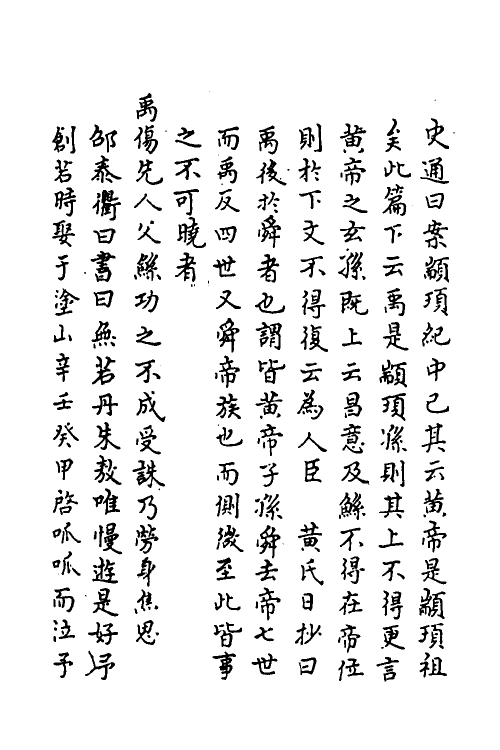 史通曰案顓頊紀中已具云黄帝是顓頊祖
矣此篇下云禹是顓頊孫則其上不得更言
黄帝之玄孫既上云昌意及鯀不得在帝位
則於下文不得復云為人臣　黄氏日抄曰
禹後於舜者也謂皆黄帝子孫舜去帝七世
而禹反四世又舜帝族也而側微至此皆事
之不可曉者
禹傷先人父鯀功之不成受誅乃勞身焦思
邵泰衢曰書曰無若丹朱敖唯慢遊是好予
創若時娶于塗山辛壬癸甲啓呱呱而泣予